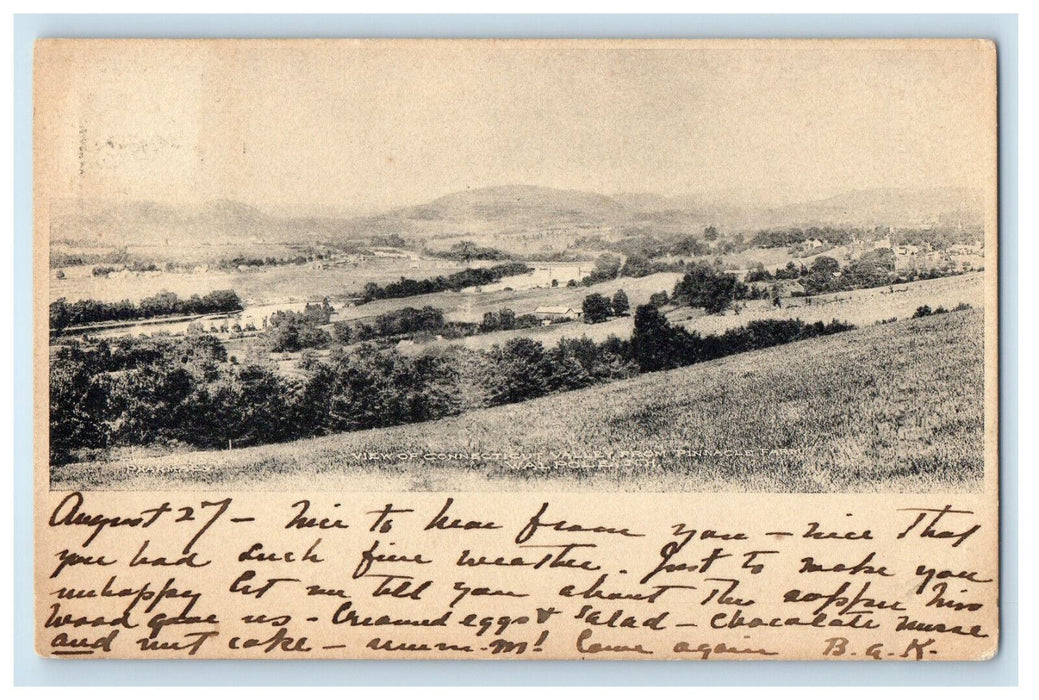 VIEW OF CONNECTICUT VALLEY FROM PINNACLE FARM
WALPOLE N.H.
August 27 - Nice to hear from you - nice that
you had such fine weather. Just to make you
unhappy let me tell you about the supper Miss
Wood gave us - Creamed eggs & Salad - Chocolate
and nut cake - mum-m! Come again B.A.K.